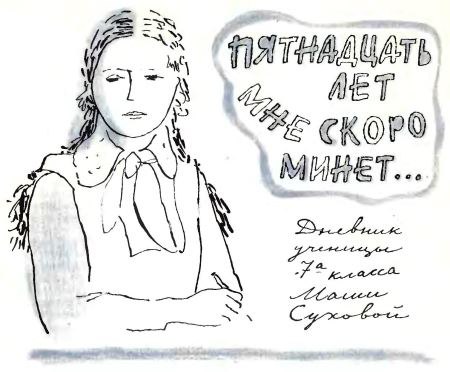 ПЯТНАДЦАТЬ
ЛЕТ
МНЕ СКОРО
МИНЕТ...
Дневник
ученицы
7а класса
Маши
Суховой